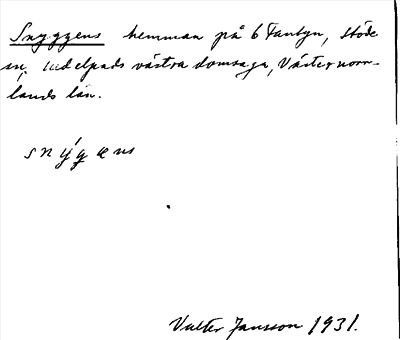 Snyggens hemman på 6 Fanbyn, Stöde
sn, Medelpads västra domsaga, Västernorr-
lands län.
snýgæns
Valter Jansson 1931.